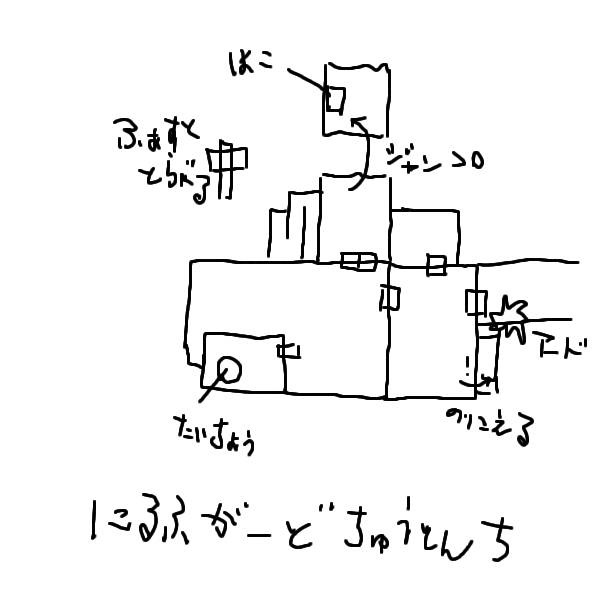 はこ
ふぁすと
とらべる
ジャンプ
たいちょう
のりこえる
にるふがーどちゅうとんち